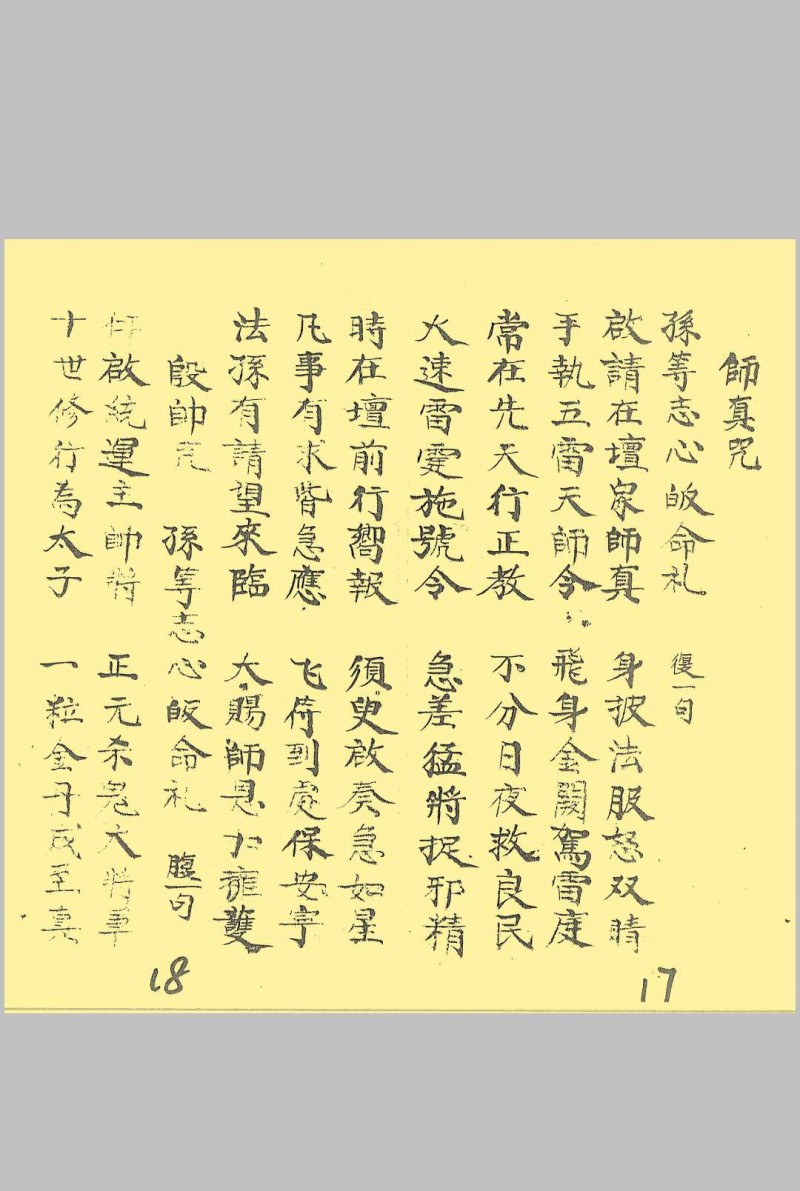 師真咒
孫等志心皈命礼 復一句
啟請在壇家師真 身披法服怒双睛
手執五雷天師令 飛身金闕駕雷庭
常在先天行正教 不分日夜救良民
火速雷霆施號令 急差猛將捉邪精
時在壇前行嚮報 須臾啟奏急如星
凡事有求皆急應 飞符到處保安寧
法孫有請望來臨 大賜師恩加雍護
殷帥咒 孫等志心皈命礼 腹一句
啟統運主帥將 正元杀鬼大將軍
十世修行為太子 一粒金丹成至真
17
18